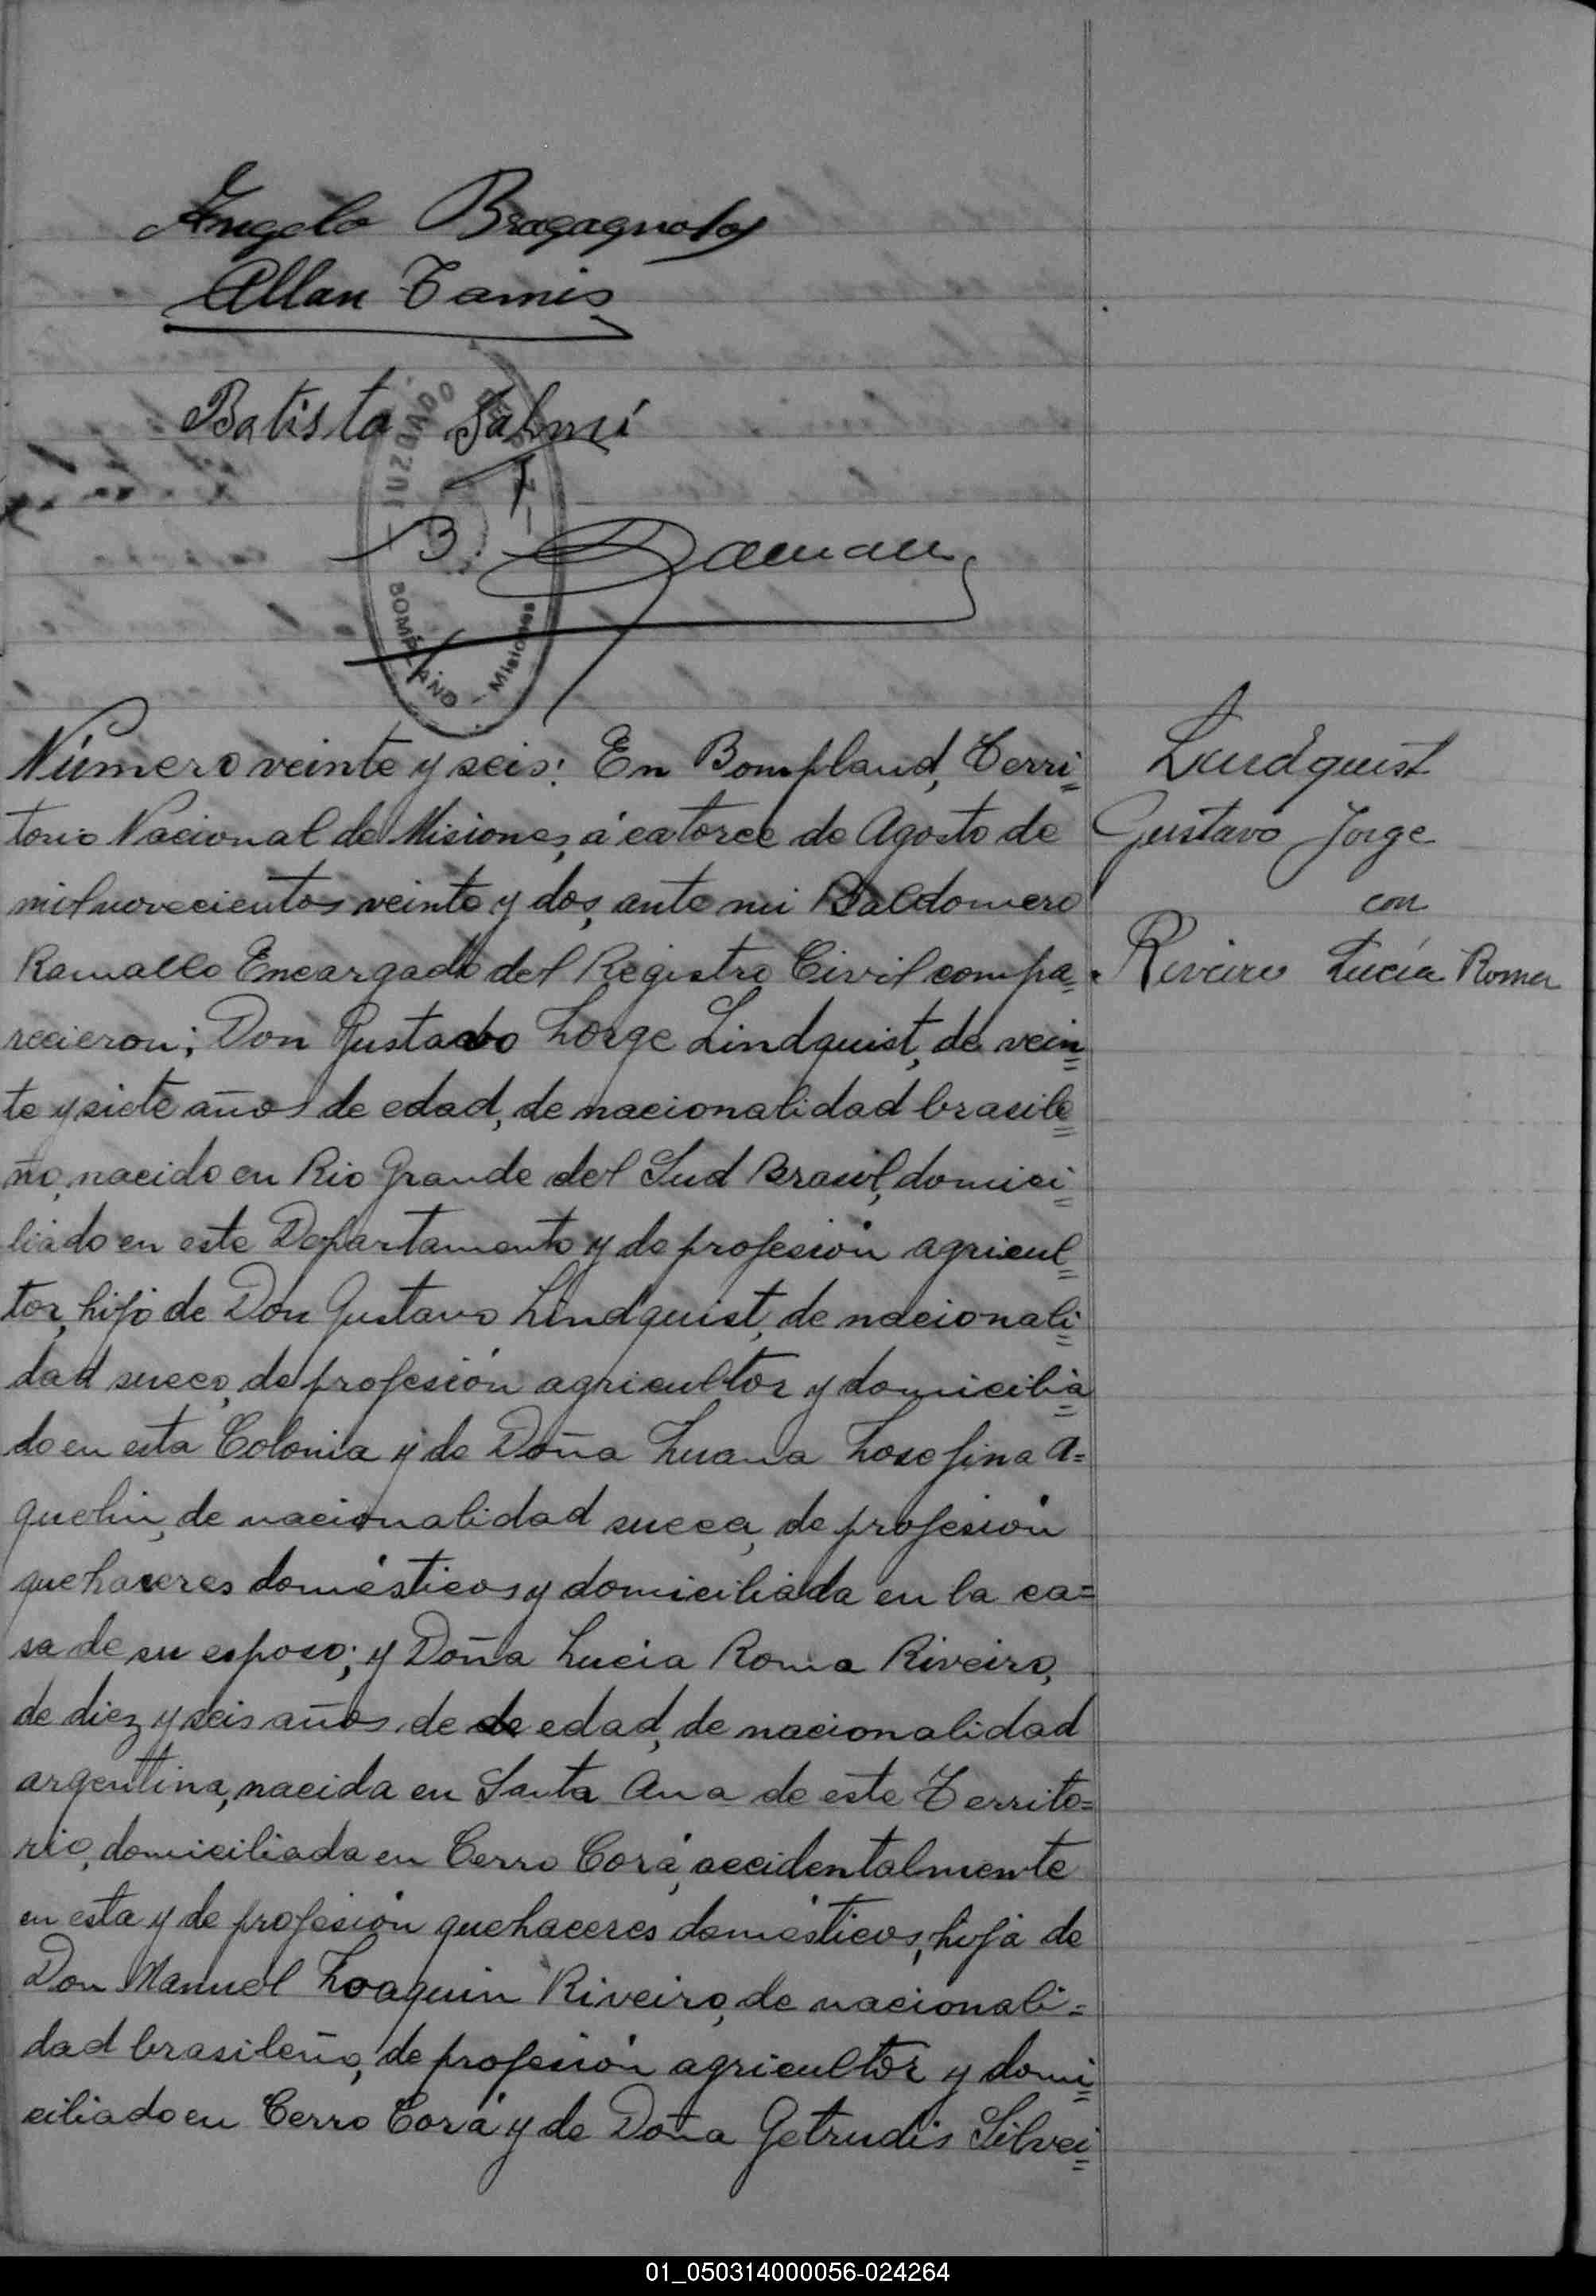 Angelo Bragagnolo
Allan Tamis
Batista
JUZGADO DE PAZ
B. Ramallo
BOMPLAND - Misiones
Número veinte y seis: En Bompland, Terri=
torio Nacional de Misiones, á catorce de Agosto de
mil novecientos veinte y dos, ante mi Baldomero
Ramallo Encargado del Registro Civil compa=
recieron; Don Gustavo Jorge Lindquist, de vein=
te y siete años de edad, de nacionalidad brasile=
ño, nacido en Rio Grande del Sud Brasil, domici=
liado en este Departamento y de profesión agricul=
tor, hijo de Don Gustavo Lindquist, de nacionali=
dad sueco, de profesión agricultor y domicilia=
do en esta Colonia y de Doña Juana Josefina A=
quelin, de nacionalidad sueca, de profesión
quehaceres domésticos y domiciliada en la ca=
sa de su esposo; y Doña Lucia Roma Riveiro,
de diez y seis años de de edad, de nacionalidad
argentina, nacida en Santa Ana de este Territo=
rio, domiciliada en Cerro Corá, accidentalmente
en esta y de profesión quehaceres domésticos, hija de
Don Manuel Joaquin Riveiro, de nacionali=
dad brasileño, de profesión agricultor y domi=
ciliado en Cerro Corá y de Doña Getrudis Silvei=
Lindquist
Gustavo Jorge
con
Riveiro Lucía Roma
01_050314000056-024264